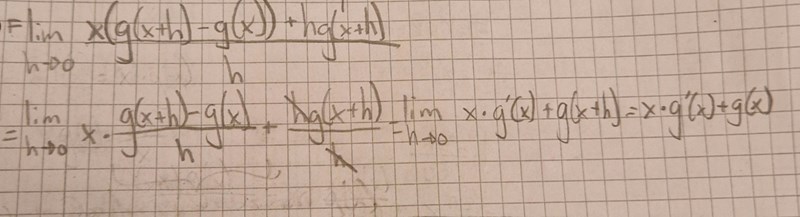 = lim h→0 x(g(x+h)-g(x))+hg(x+h) / h
= lim h→0 x · g(x+h)-g(x) / h + hg(x+h) / h = lim h→0 x·g'(x)+g(x+h)=x·g'(x)+g(x)